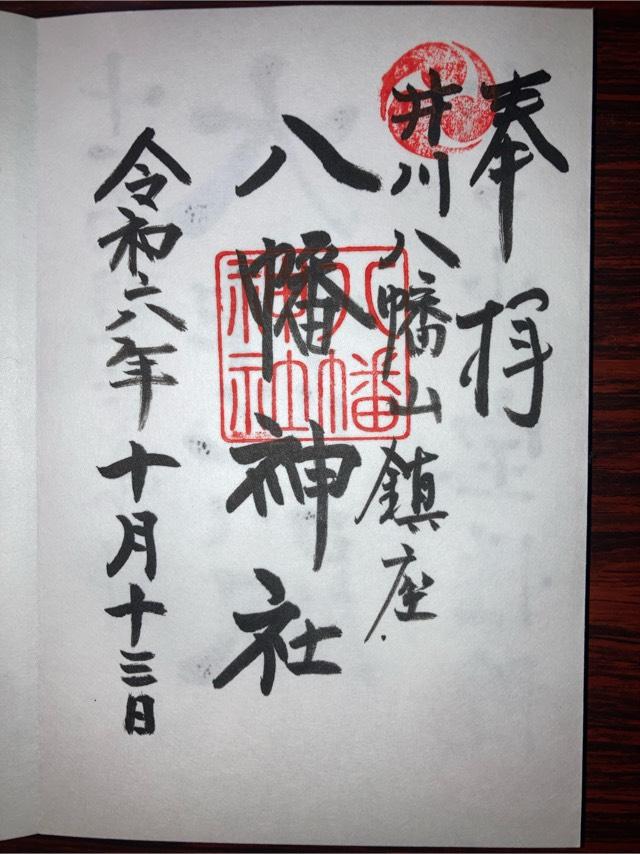 奉拝
井川八幡山鎮座
八幡神社
八幡
神社
令和六年十月十三日